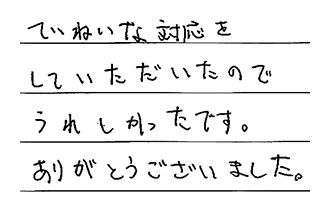 ていねいな対応を
していただいたので
うれしかったです。
ありがとうございました。